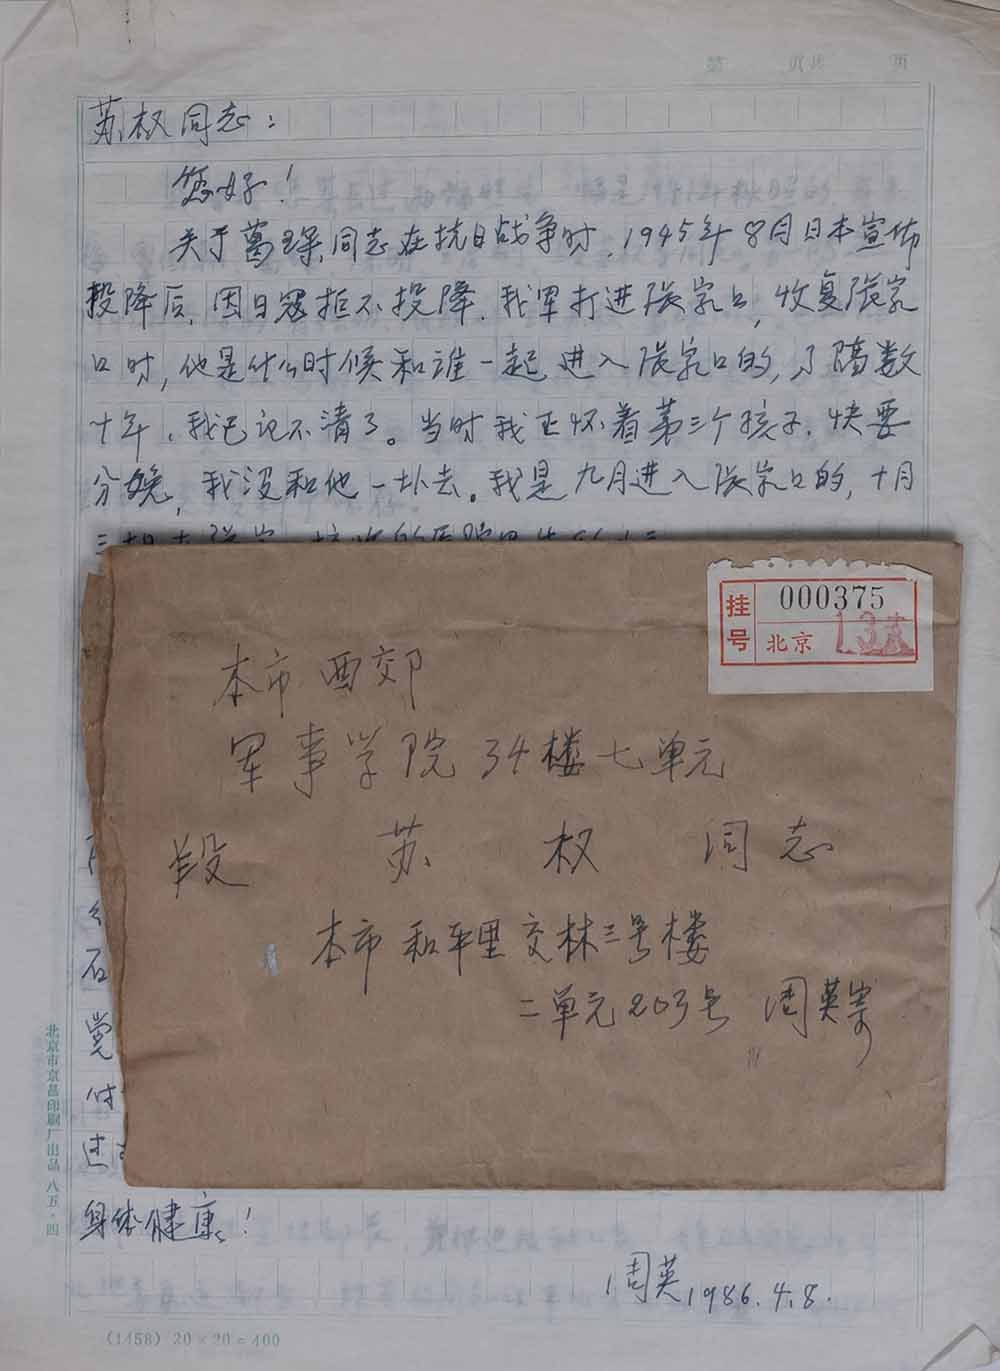 第 页共 页
苏权同志：
您好！
关于葛琛同志在抗日战争时，1945年8月日本宣佈
投降后，因日寇拒不投降，我军打进张家口，收复张家
口时，他是什么时候和谁一起进入张家口的，了隔数
十年，我已记不清了。当时我正怀着第三个孩子，快要
分娩，我没和他一扑去。我是九月进入张家口的，十月
挂号
000375
北京
本市西郊
军事学院34楼七单元
段苏权同志
本市和平里交林三号楼
二单元203号 周英
石
党
身体健康！
周英 1986.4.8.
北京市京昌印刷厂出品 八五·四
(1458) 20×20=400